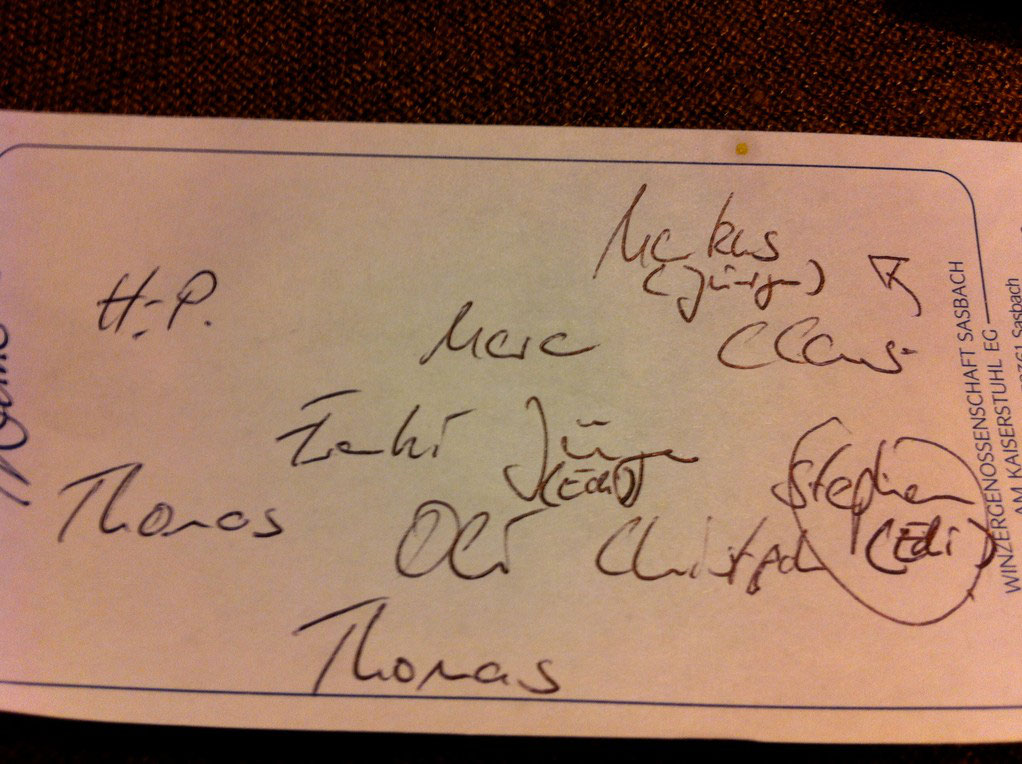 Markus
(Jürgen)
H.-P.
Marc
Claus
Jürgen
(Edi)
Stephan
(Edi)
Thomas
Oli Christoph
Thomas
WINZERGENOSSENSCHAFT SASBACH
AM KAISERSTUHL EG
Sasbach